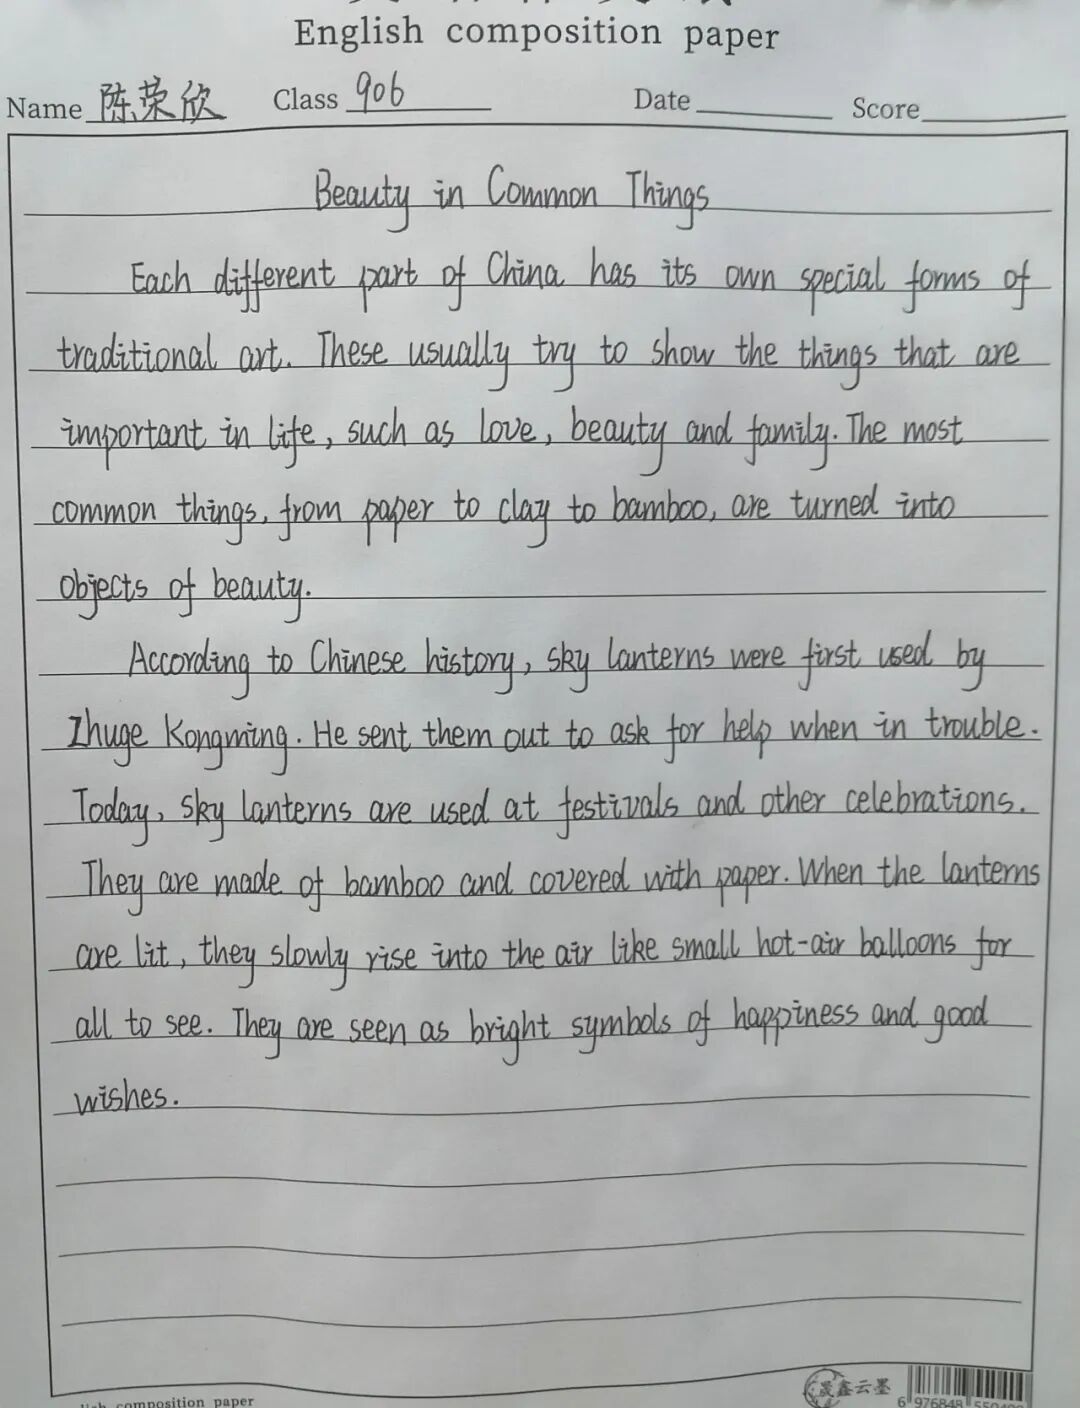 English composition paper
Name 陈荣欣 Class 906 Date Score
Beauty in Common Things
Each different part of China has its own special forms of
traditional art. These usually try to show the things that are
important in life, such as love, beauty and family. The most
common things, from paper to clay to bamboo, are turned into
objects of beauty.
According to Chinese history, sky lanterns were first used by
Zhuge Kongming. He sent them out to ask for help when in trouble.
Today, sky lanterns are used at festivals and other celebrations.
They are made of bamboo and covered with paper. When the lanterns
are lit, they slowly rise into the air like small hot-air balloons for
all to see. They are seen as bright symbols of happiness and good
wishes.
composition paper
晟鑫云墨
6 976848